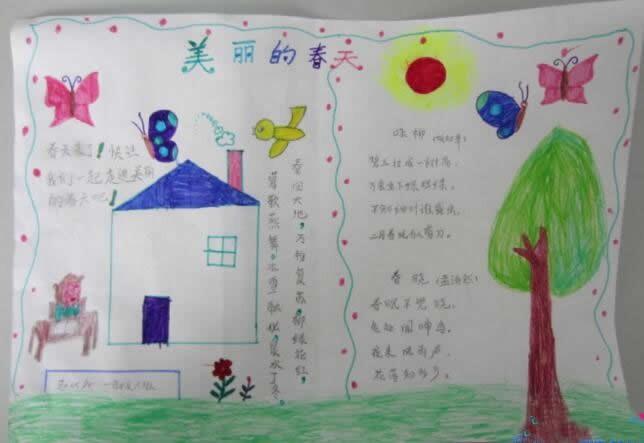 美丽的春天
春天来了！快让
我们一起走进美丽
的春天吧！
春回大地，万物复苏，柳绿花红，
莺歌燕舞，冰雪融化，
咏柳
碧玉妆成一树高，
万条垂下绿丝绦。
不知细叶谁裁出，
二月春风似剪刀。
春晓（孟浩然）
春眠不觉晓，
处处闻啼鸟。
夜来风雨声，
花落知多少。